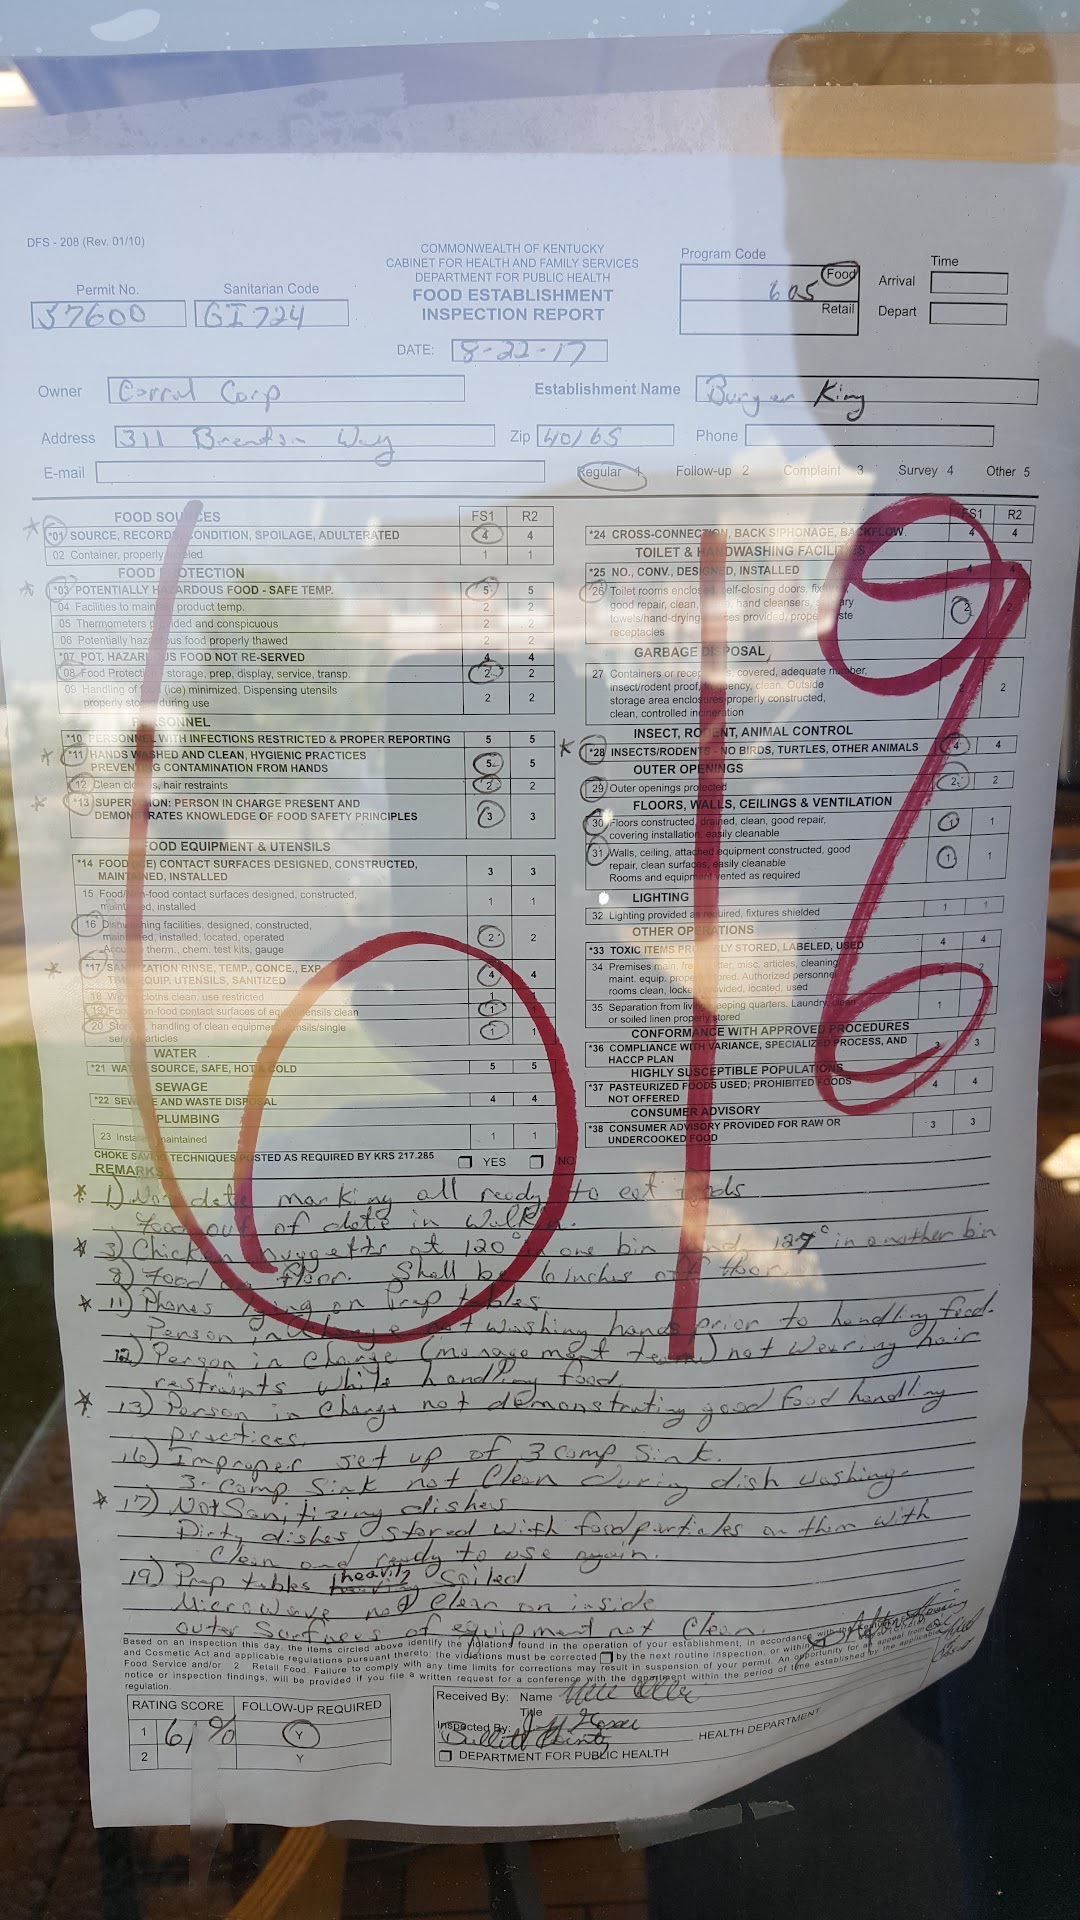 DFS - 208 (Rev. 01/10)
COMMONWEALTH OF KENTUCKY
CABINET FOR HEALTH AND FAMILY SERVICES
DEPARTMENT FOR PUBLIC HEALTH
FOOD ESTABLISHMENT
INSPECTION REPORT
Permit No. 37600
Sanitarian Code GI724
DATE: 8-22-17
Program Code
605 Food
Retail
Time
Arrival
Depart
Owner Corral Corp
Establishment Name Burger King
Address 311 Brenton Way Zip 40165 Phone
E-mail Regular 1 Follow-up 2 Complaint 3 Survey 4 Other 5
FOOD SOURCES FS1 R2
*01 SOURCE, RECORDS, CONDITION, SPOILAGE, ADULTERATED 4 4
02 Container, properly labeled 1 1
FOOD PROTECTION
*03 POTENTIALLY HAZARDOUS FOOD - SAFE TEMP. 5 5
04 Facilities to maintain product temp. 2 2
05 Thermometers provided and conspicuous 2 2
06 Potentially hazardous food properly thawed 2 2
*07 POT. HAZARDOUS FOOD NOT RE-SERVED 4 4
08 Food Protection storage, prep, display, service, transp. 2 2
09 Handling of food (ice) minimized. Dispensing utensils
properly stored during use 2 2
PERSONNEL
*10 PERSONNEL WITH INFECTIONS RESTRICTED & PROPER REPORTING 5 5
*11 HANDS WASHED AND CLEAN, HYGIENIC PRACTICES
PREVENTING CONTAMINATION FROM HANDS 5 5
12 Clean clothes, hair restraints 2 2
*13 SUPERVISION: PERSON IN CHARGE PRESENT AND
DEMONSTRATES KNOWLEDGE OF FOOD SAFETY PRINCIPLES 3 3
FOOD EQUIPMENT & UTENSILS
*14 FOOD (ICE) CONTACT SURFACES DESIGNED, CONSTRUCTED,
MAINTAINED, INSTALLED 3 3
15 Food/Non-food contact surfaces designed, constructed,
maintained, installed 1 1
16 Dishwashing facilities, designed, constructed,
maintained, installed, located, operated
Accurate therm., chem. test kits, gauge 2 2
*17 SANITIZATION RINSE, TEMP., CONCE., EXP.
TIME EQUIP. UTENSILS, SANITIZED 4 4
18 Wiping cloths clean, use restricted 1
19 Food/non-food contact surfaces of equip. utensils clean 1 1
20 Storage, handling of clean equipment, utensils/single
service articles 1 1
WATER
*21 WATER SOURCE, SAFE, HOT & COLD 5 5
SEWAGE
*22 SEWAGE AND WASTE DISPOSAL 4 4
PLUMBING
23 Installed, maintained 1 1
CHOKE SAVING TECHNIQUES POSTED AS REQUIRED BY KRS 217.285 YES NO
FS1 R2
*24 CROSS-CONNECTION, BACK SIPHONAGE, BACKFLOW 4 4
TOILET & HANDWASHING FACILITIES
*25 NO., CONV., DESIGNED, INSTALLED 4 4
26 Toilet rooms enclosed, self-closing doors, fixtures,
good repair, clean, hand cleansers, sanitary
towels/hand-drying devices provided, proper waste
receptacles 2 2
GARBAGE DISPOSAL
27 Containers or receptacles, covered, adequate number,
insect/rodent proof, frequency, clean. Outside
storage area enclosures properly constructed,
clean, controlled incineration 2 2
INSECT, RODENT, ANIMAL CONTROL
*28 INSECTS/RODENTS - NO BIRDS, TURTLES, OTHER ANIMALS 4 4
OUTER OPENINGS
29 Outer openings protected 2 2
FLOORS, WALLS, CEILINGS & VENTILATION
30 Floors constructed, drained, clean, good repair,
covering installation, easily cleanable 1 1
31 Walls, ceiling, attached equipment constructed, good
repair, clean surfaces, easily cleanable
Rooms and equipment vented as required 1 1
LIGHTING
32 Lighting provided as required, fixtures shielded 1 1
OTHER OPERATIONS
*33 TOXIC ITEMS PROPERLY STORED, LABELED, USED 4 4
34 Premises main. free litter, misc. articles, cleaning
maint. equip. properly stored. Authorized personnel
rooms clean, lockers provided, located, used 2 2
35 Separation from living/sleeping quarters. Laundry, clean
or soiled linen properly stored 1
CONFORMANCE WITH APPROVED PROCEDURES
*36 COMPLIANCE WITH VARIANCE, SPECIALIZED PROCESS, AND
HACCP PLAN 3 3
HIGHLY SUSCEPTIBLE POPULATIONS
*37 PASTEURIZED FOODS USED; PROHIBITED FOODS
NOT OFFERED 4 4
CONSUMER ADVISORY
*38 CONSUMER ADVISORY PROVIDED FOR RAW OR
UNDERCOOKED FOOD 3 3
61%
REMARKS
* 1) Not date marking all ready to eat foods
Food out of date in Walkin.
* 3) Chicken nuggetts at 120° in one bin and 127° in another bin
8) Food on floor. Shall be 6 inches off floor.
* 11) Phones lying on Prep tables
Person in Charge not washing hands prior to handling food.
12) Person in Charge (management team) not wearing hair
restraints while handling food
* 13) Person in Charge not demonstrating good food handling
practices.
16) Improper set up of 3 comp sink.
3-comp sink not Clean during dish washing.
* 17) Not Sanitizing dishes
Dirty dishes stored with food particles on them with
Clean and ready to use again.
19) Prep tables heavily Soiled
Microwave not Clean on inside
outer Surfaces of equipment not Clean.
Based on an inspection this day, the items circled above identify the violations found in the operation of your establishment, in accordance with the
and Cosmetic Act and applicable regulations pursuant thereto: the violations must be corrected by the next routine inspection, or within
Food Service and/or 2 Retail Food. Failure to comply with any time limits for corrections may result in suspension of your permit. An opportunity for an appeal from
notice or inspection findings, will be provided if you file a written request for a conference with the department within the period of time established by the applicable
regulation.
RATING SCORE FOLLOW-UP REQUIRED
1 61% Y
2 Y
Received By: Name
Title
Inspected By:
Bullitt County HEALTH DEPARTMENT
DEPARTMENT FOR PUBLIC HEALTH